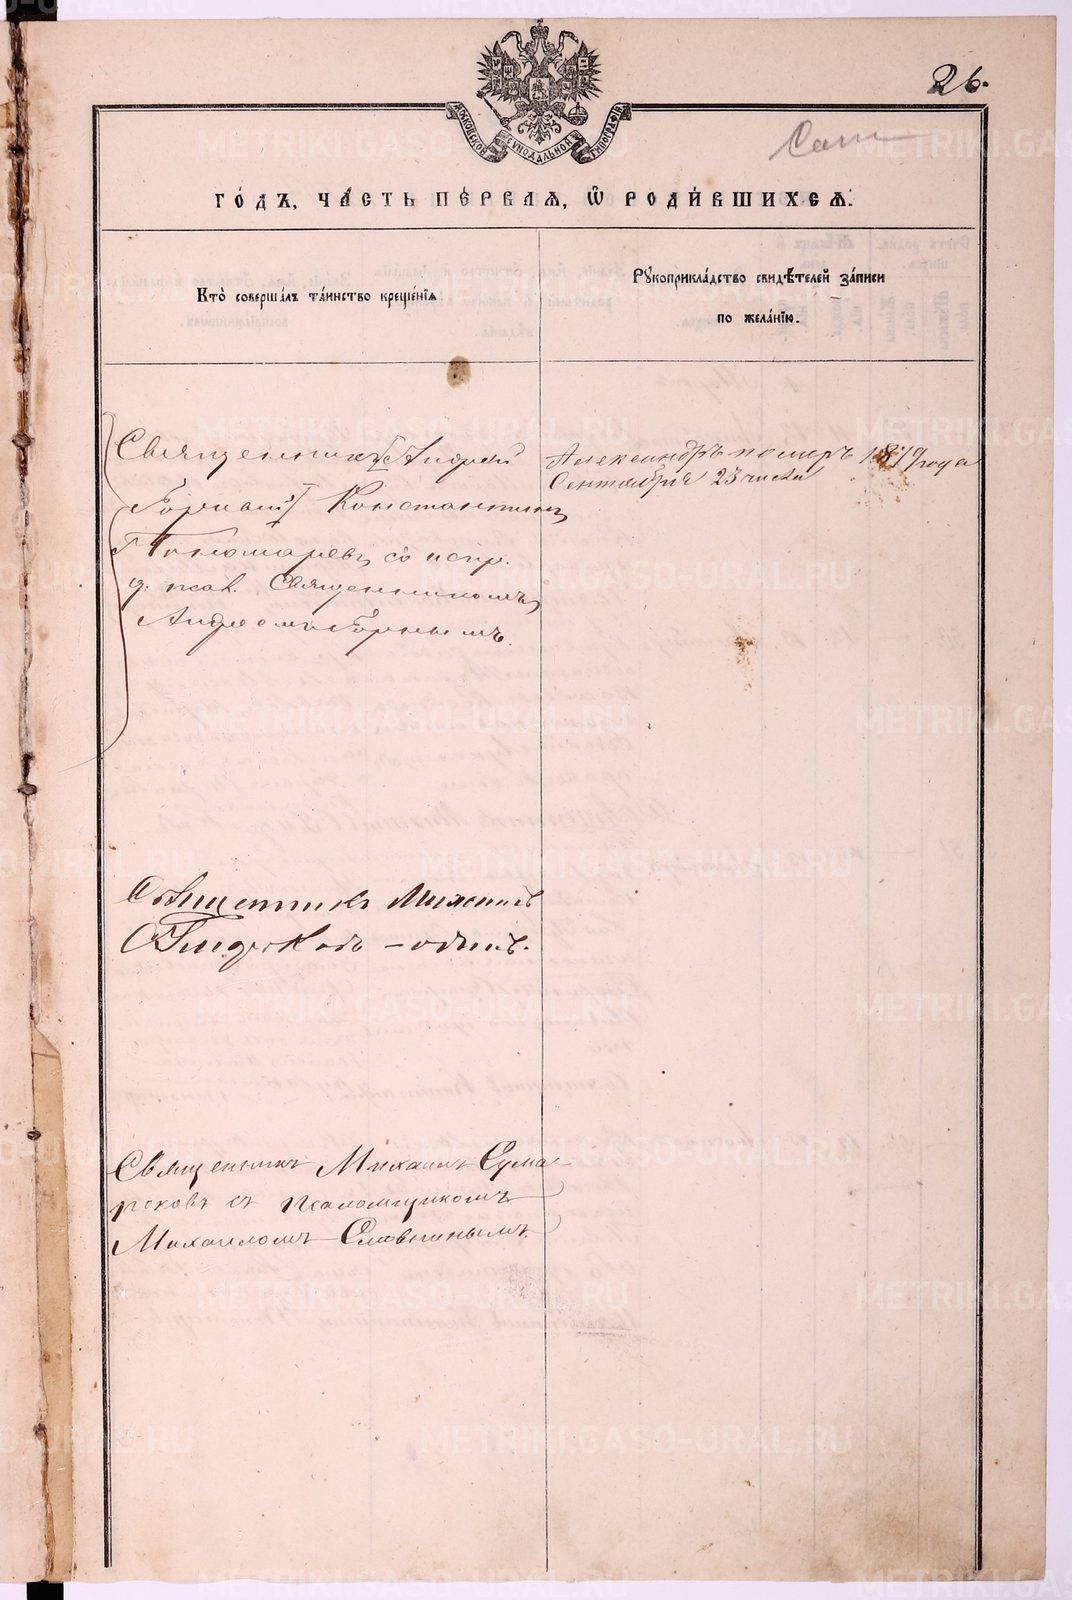 26.
МОСКОВСКОЙ СѴНОДАЛЬНОЙ ТИПОГРАФІИ
ГО́ДЪ, ЧА́СТЬ ПЕ́РВАѦ, Ѡ҆ РОДИ́ВШИХСѦ:
Кто̀ соверша́лъ та́инство креще́нїѧ
Рꙋкоприкла́дство свидѣ́телей за́писи
по жела́нїю.
Священникъ Андрей
Горный Константинъ
Пономаревъ со испр.
д. псал. Священникомъ
Андреомъ Горнымъ.
Александръ померъ 1879 года
Сентября 23 числа
Священникъ Михаилъ
Священникъ Михаилъ Сума-
роковъ съ псаломщикомъ
Михаиломъ Словцовымъ.
METRIKI.GASO-URAL.RU